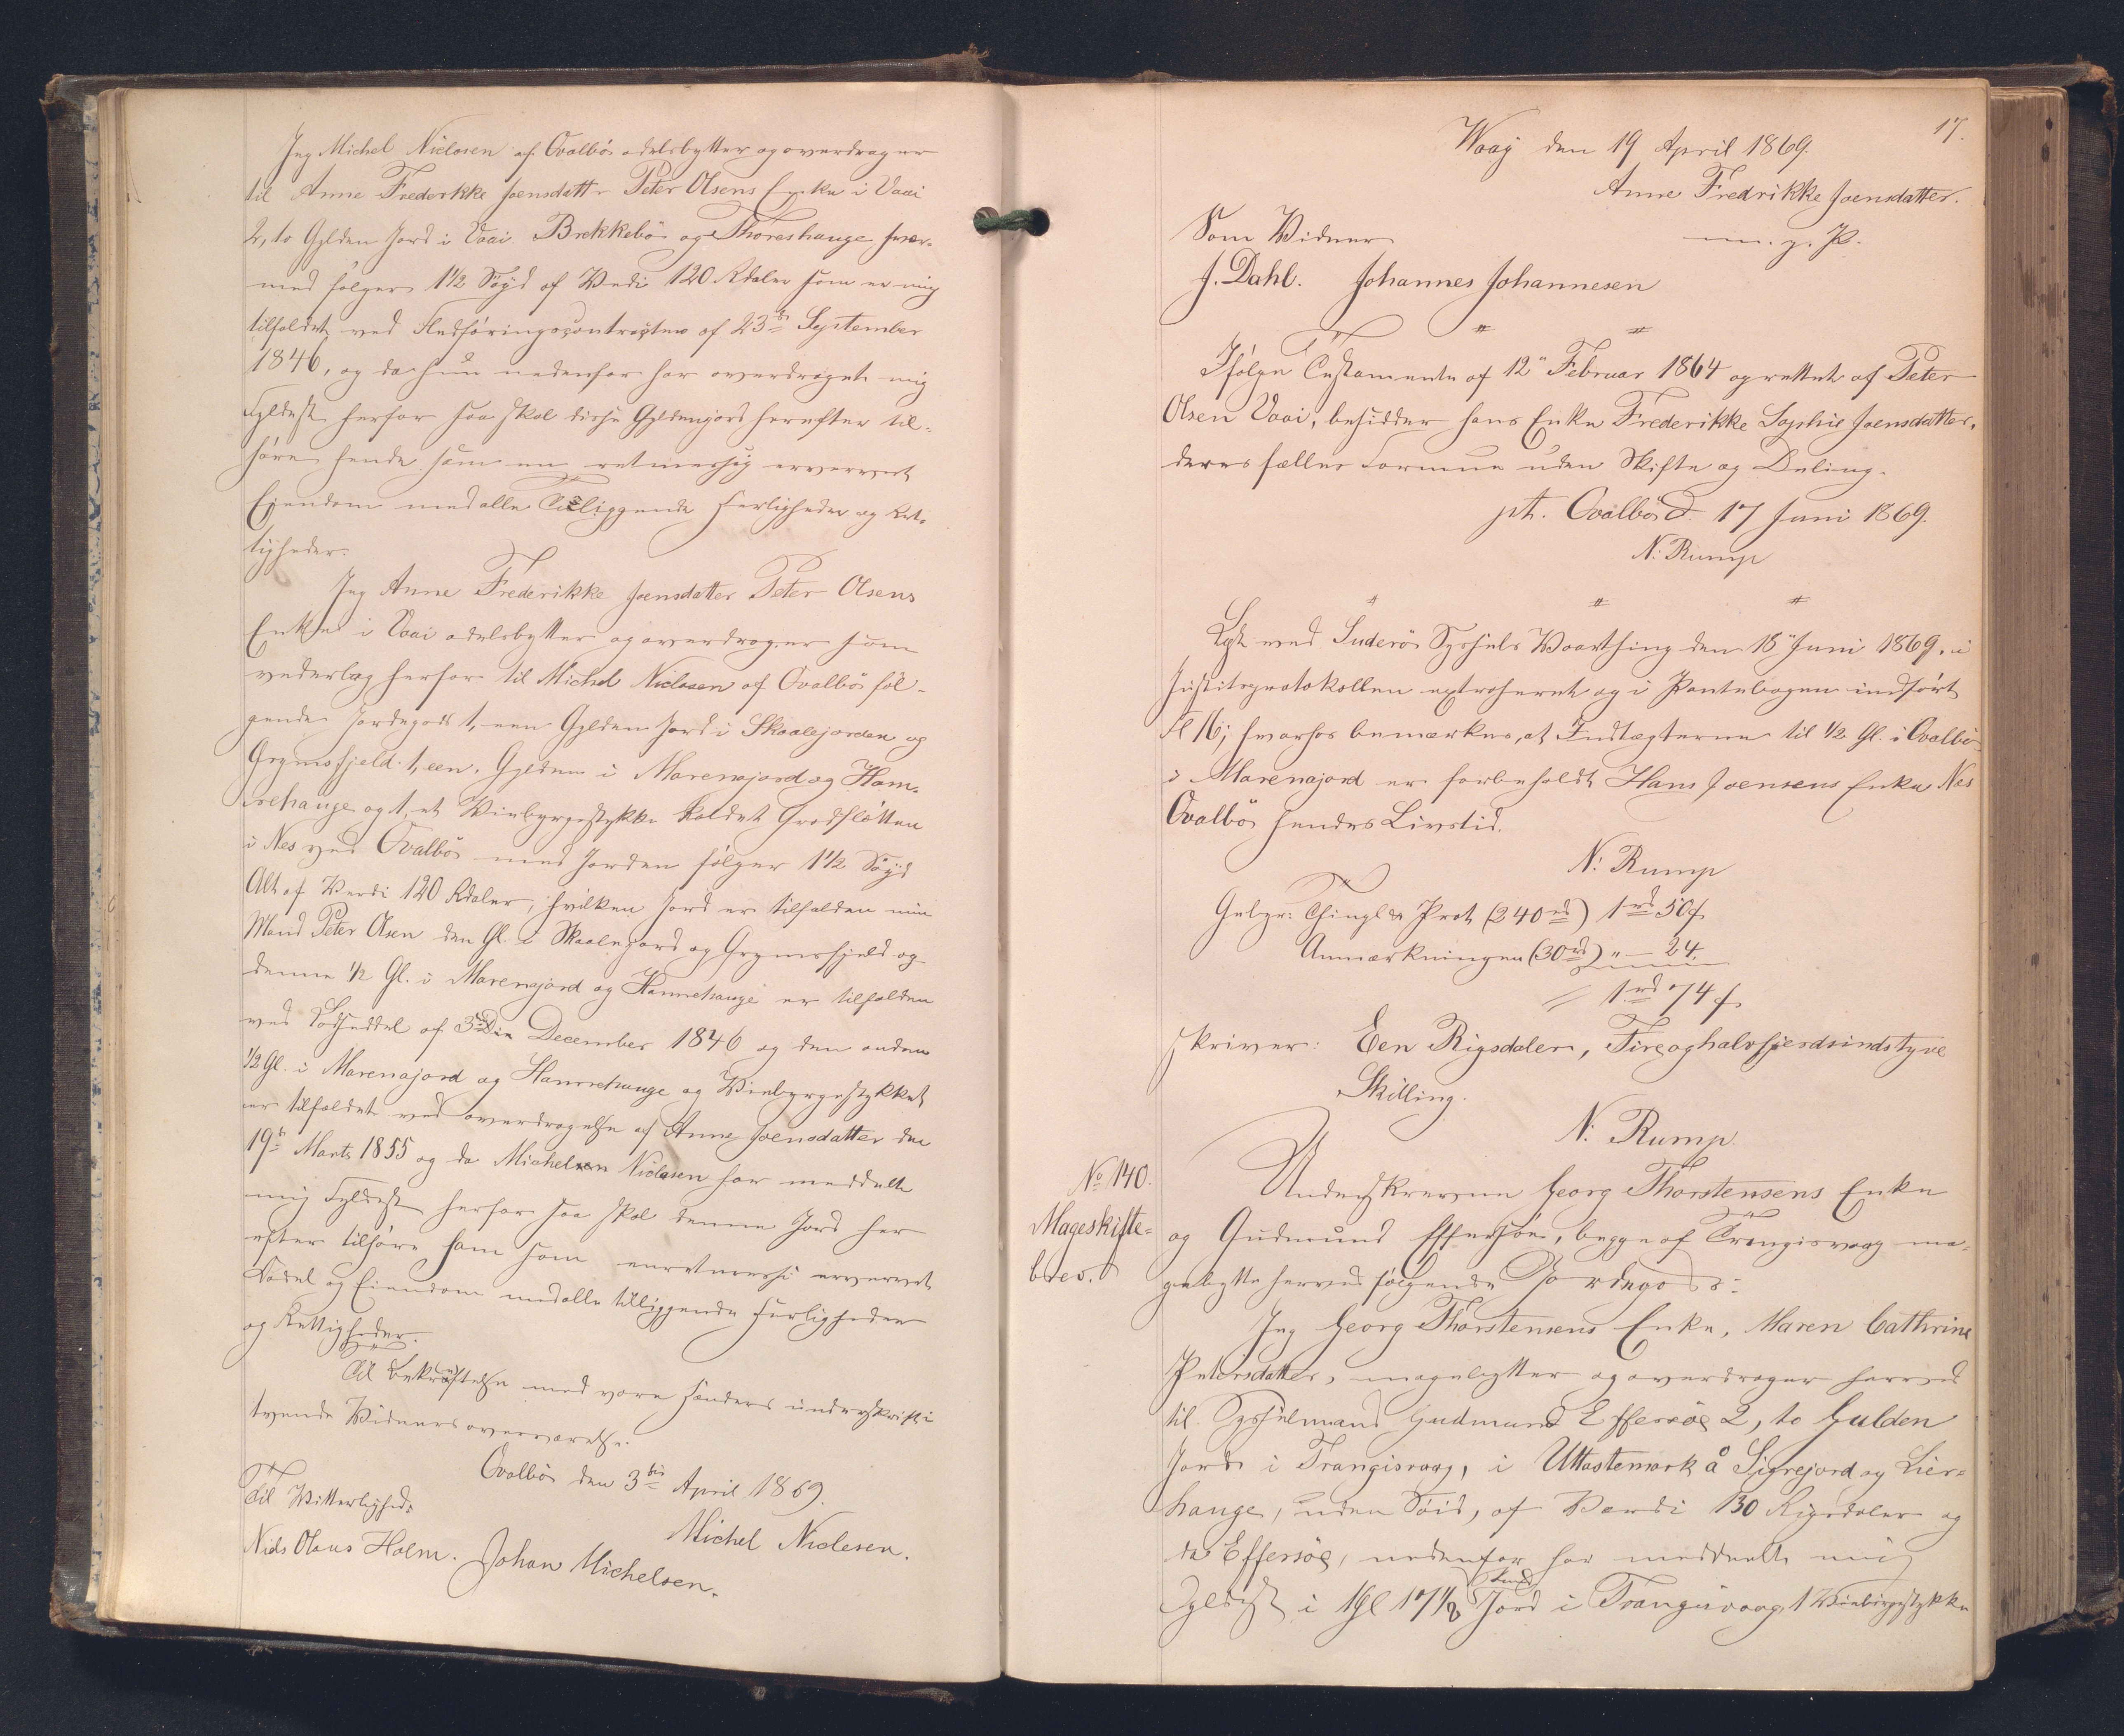 Jeg Michel Nielsen af Qvalbö adelsbytter og overdrager
til Anne Frederkke Joensdatt. Peter Olsens Enke i Vaai
2, to Gylden Jord i Vaai Brekkebö og Thoreshauge hvor-
med følger 1½ Søyd af Verdi 120 Rdaler som er mig
tilfaldet ved Fledføringscontracten af 23de September
1846, og da hun nedenfor har overdraget mig
Fyldest herfor saa skal disse Gyldenjord herefter til-
høre hende som en retmessig erververet
Eiendom med alle Tilliggende Herligheder og Ret-
tigheder.
Jeg Anne Frederikke Joensdatter Peter Olsens
Enke i Vaai adelsbytter og overdrager som
vederlag herfor til Michel Nielsen af Qvalbö føl-
gende Jordegods 1, een Gylden Jord i Skaalejorden og
Grymsfjeld 1, een Gylden i Marenajord og Ham-
rehauge og 1, et Vinbyrgestykke kaldet Grødslötten
i Nes ved Qvalbö med Jorden følger 1½ Søyd
Alt af Verdi 120 Rdaler, hvilken Jord er tilfalden min
Mand Peter Olsen den Gl. i Skaalejord og Grymsfjeld og
denne ½ Gl. i Marenajord og Hamrehauge er tilfalden
ved Lodseddel af 3die December 1846 og den anden
½ Gl. i Marenajord og Hamrehauge og Vinbyrgestykket
er tilfaldet ved overdragelse af Anne Joensdatter den
19de Marts 1855 og da Michel Nielsen har meddelt
mig Fyldest herfor saa skal denne Jord her
efter tilhøre ham som en retmessi erververet
Lodel og Eiendom med alle tilliggende Herligheder
og Rettigheder.
Til bekræftelse med vore Hænders underskrift i
tvende Vidners overværelse.
Qvalbö den 3die April 1869.
Til Vitterlighed.
Michel Nielesen.
Niels Olaus Holm. Johan Michelsen.
17.
Waag den 19 April 1869.
Anne Fredrikke Joensdatter.
Som Vidner
m. f. P.
J. Dahl. Johannes Johannesen
Ifølge Testamente af 12" Februar 1864 oprettet af Peter
Olsen Vaai, besidder hans Enke Frederikke Sophie Joensdatter,
deres fælles Formue uden Skifte og Deling.
pt. Qvalbö d. 17 Juni 1869.
N: Rump
Læst ved Suderö Syssels Vaarthing den 18" Juni 1869, i
Justitsprotokollen extraheret og i Pantebogen indført
Fl 16; hvorhos bemærkes, at Indtægterne til ½ Gl. i Qvalbö
i Marenajord er forbeholdt Hans Joensens Enke Nes
Qvalbö hendes Livstid.
N: Rump
Gebyr: Thingl & Prot (240 rd) 1 rd 50 ß
Anmærkningen (30 rd) " — 24.
1 rd 74 ß
skriver: Een Rigsdaler, Fireoghalvfjerdsindstyve
Skilling.
N. Rump.
No 140.
Mageskifte-
brev.
Underskrevne Georg Thorstensens Enke
og Gudmund Effersöe, begge af Trangisvaag ma-
gebytte herved følgende Jordegods:
Jeg Georg Thorstensens Enke, Maren Cathrine
Petersdatter, magebytter og overdrager herved
til Sysselmand Gudmund Effersöe 2, to Gylden
Jord i Trangisvaag, i Uttastemark å Sigrejord og Lier-
hauge, uden Søid, af Værdi 130 Rigsdaler og
da Effersöe, nedenfor har meddeelt mig
Fyldest i 1 Gl 17½ Skind Jord i Trangisvaag, 1 Vinbirgestykke